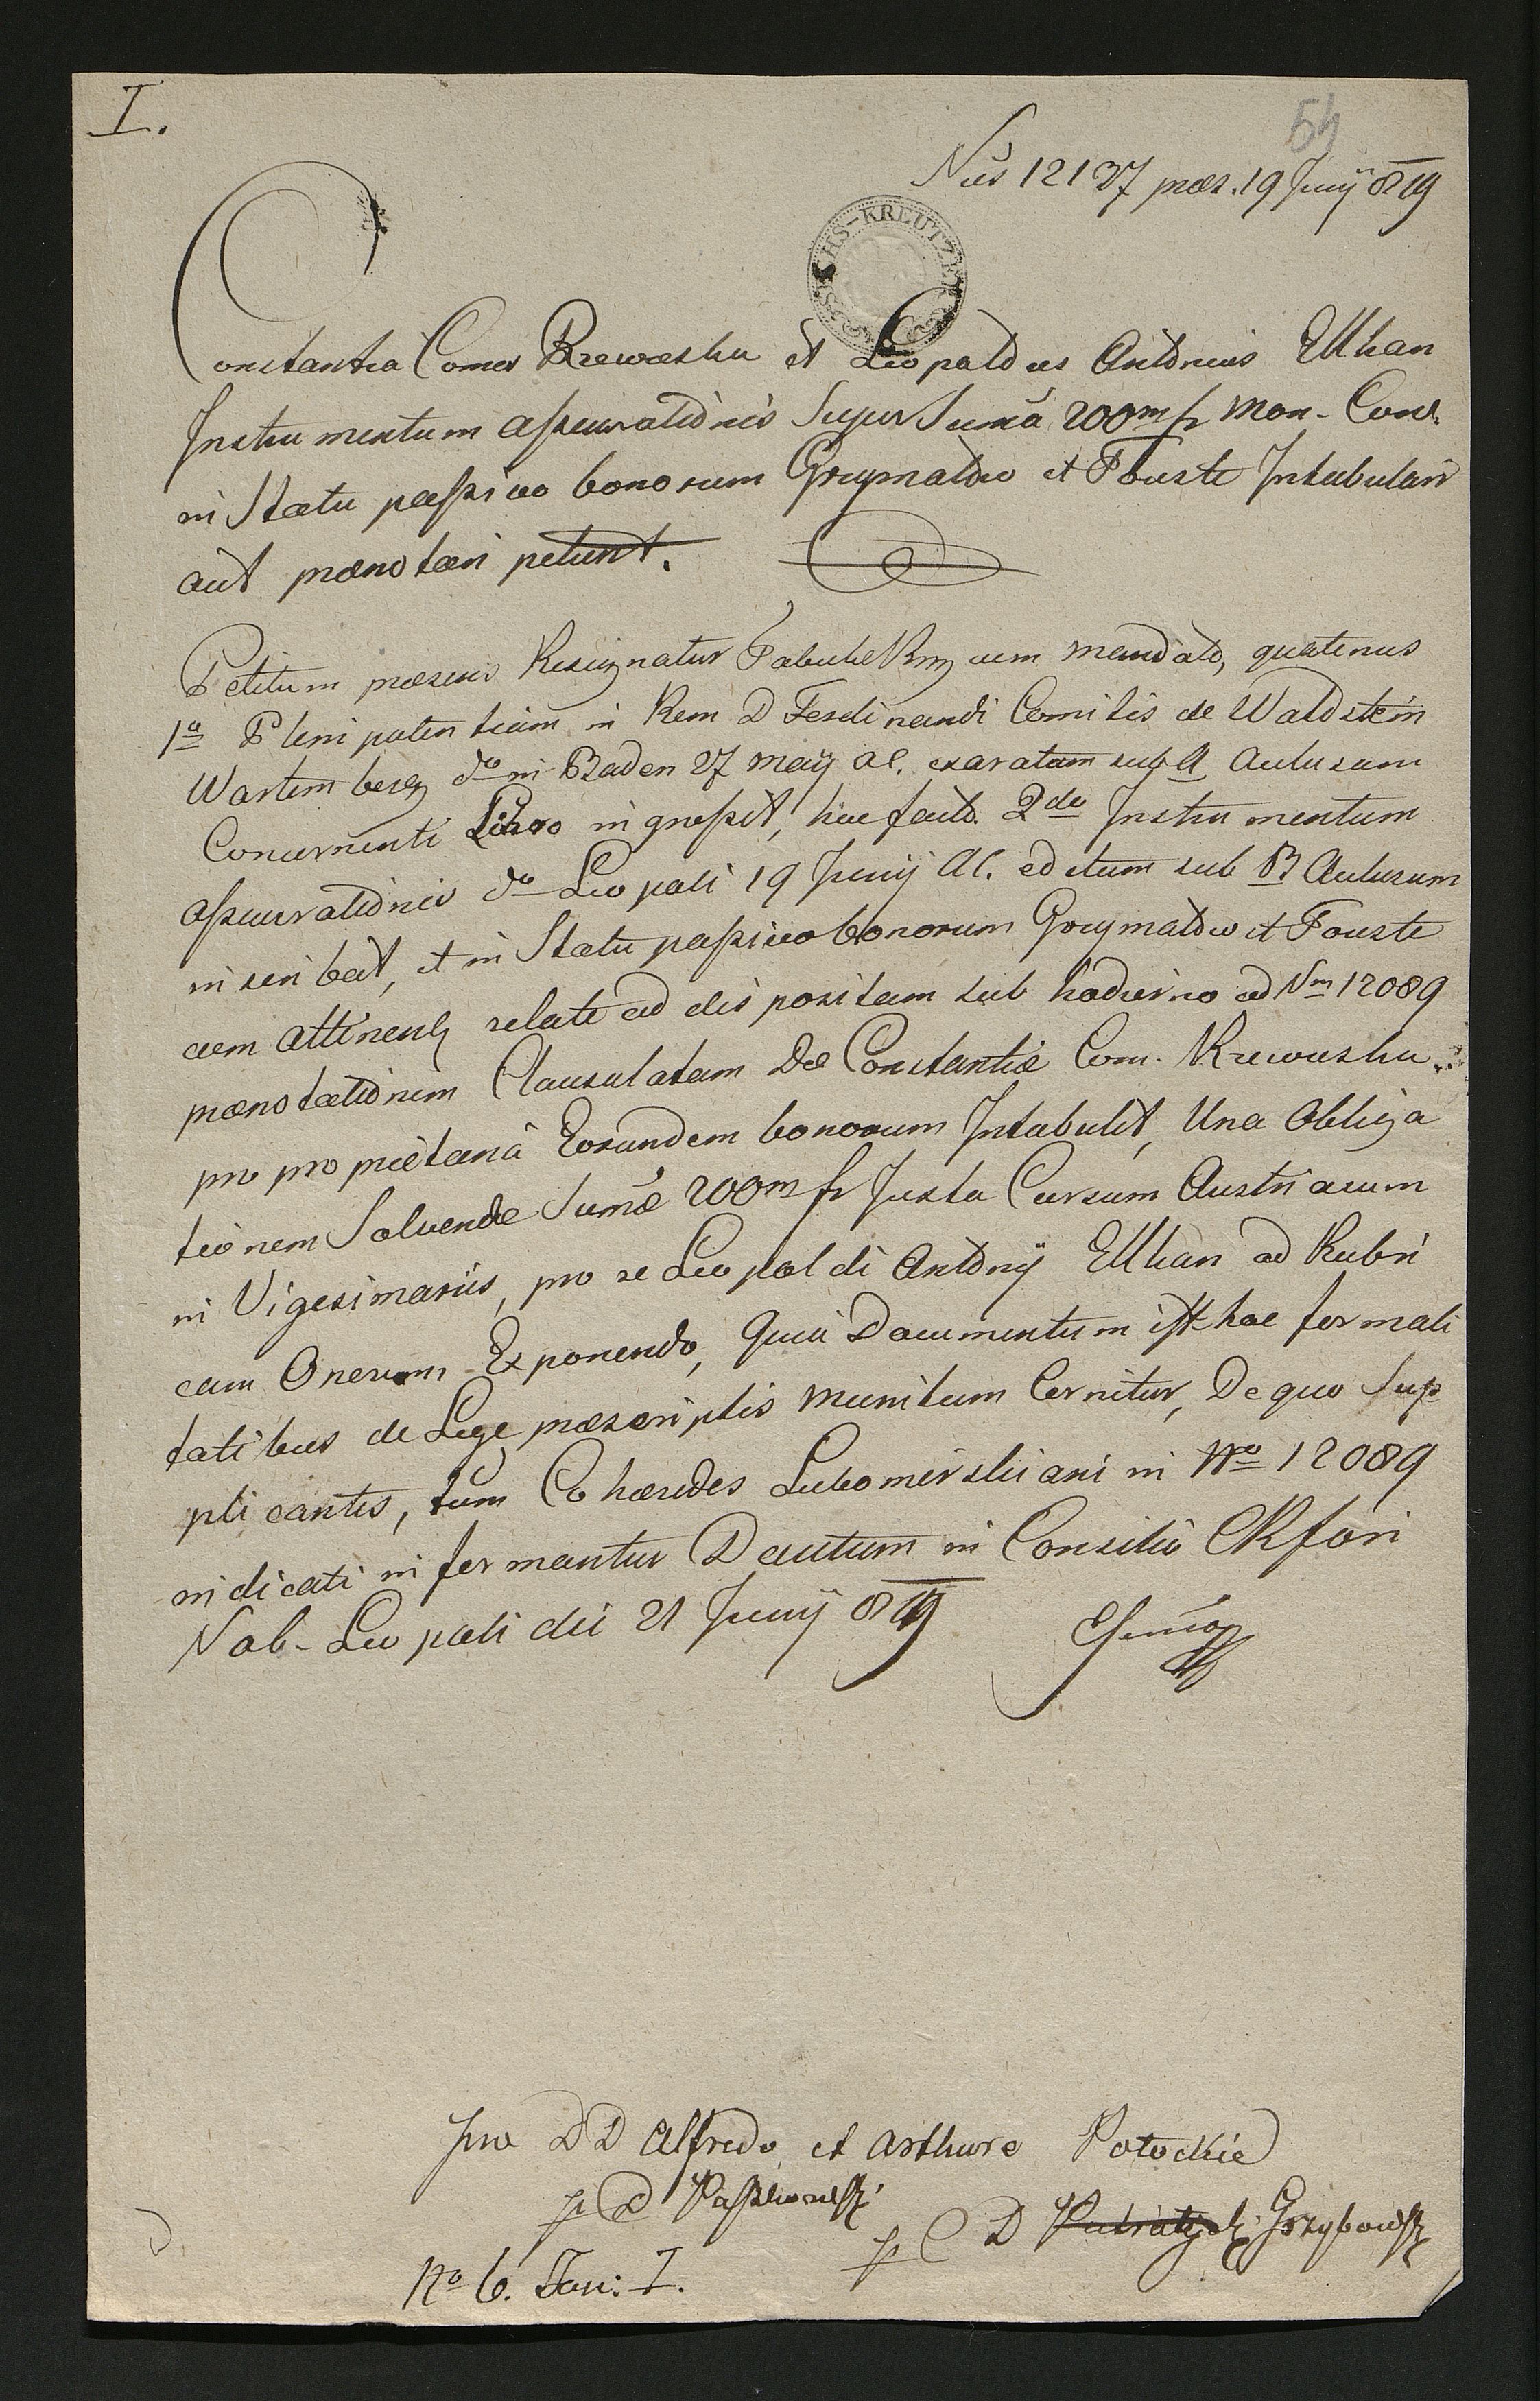 I.
54
Nus 12137 præs. 19 Junij 819
SECHS-KREUTZER
Constantia Comes Rzewuska et Leopoldus Antonius Elkan
Instrumentum assecurationis super Summã 200m fr Mon. Conv.
in Statu passivo bonorum Grzymałow et Touste Intabulari
aut prænotari petunt.
Petitum præsens Resignatur Tabulæ Rng cum mandato, quatenus
1o Plenipotentiam in Rem D Ferdinandi Comitis de Waldstein
Wartemberg do in Baden 27 maij a c. exaratam sub A adlusam
Concernenti Libro ingrossit, hoc facto. 2do Instrumentum
assecurationis do Leopoli 19 Junij a c. editum sub B adlusum
inscribat, et in Statu passivo bonorum Grzymałow et Touste
cum attinentg relate ad dispositam sub hodierno ad Nm 12089
prænotationem Clausulatam Dæ Constantiæ Com. Rzewuska
pro proprietariã Eorundem bonorum Intabulet, Una Obliga
tionem Solvendæ Sumæ 200m fr Juxta Cursum Austriacum
in Vigesimariis, pro re Leopoldi Antonij Elkan ad Rubri
cam Onerum Exponendo, Quia Documentum isthoc formali
tatibus de Lege præscriptis munitum Cernitur, De quo Sup
plicantes, tum Cohæredes Lubomirskiani in No 12089
indicati informantur Datum in Consilio CRfori
Nob. Leopoli die 21 Junij 819
pro DD Alfredo et Arthuro Potockie
p D
p C D Grzybowsk
No 6. Fasc: I.